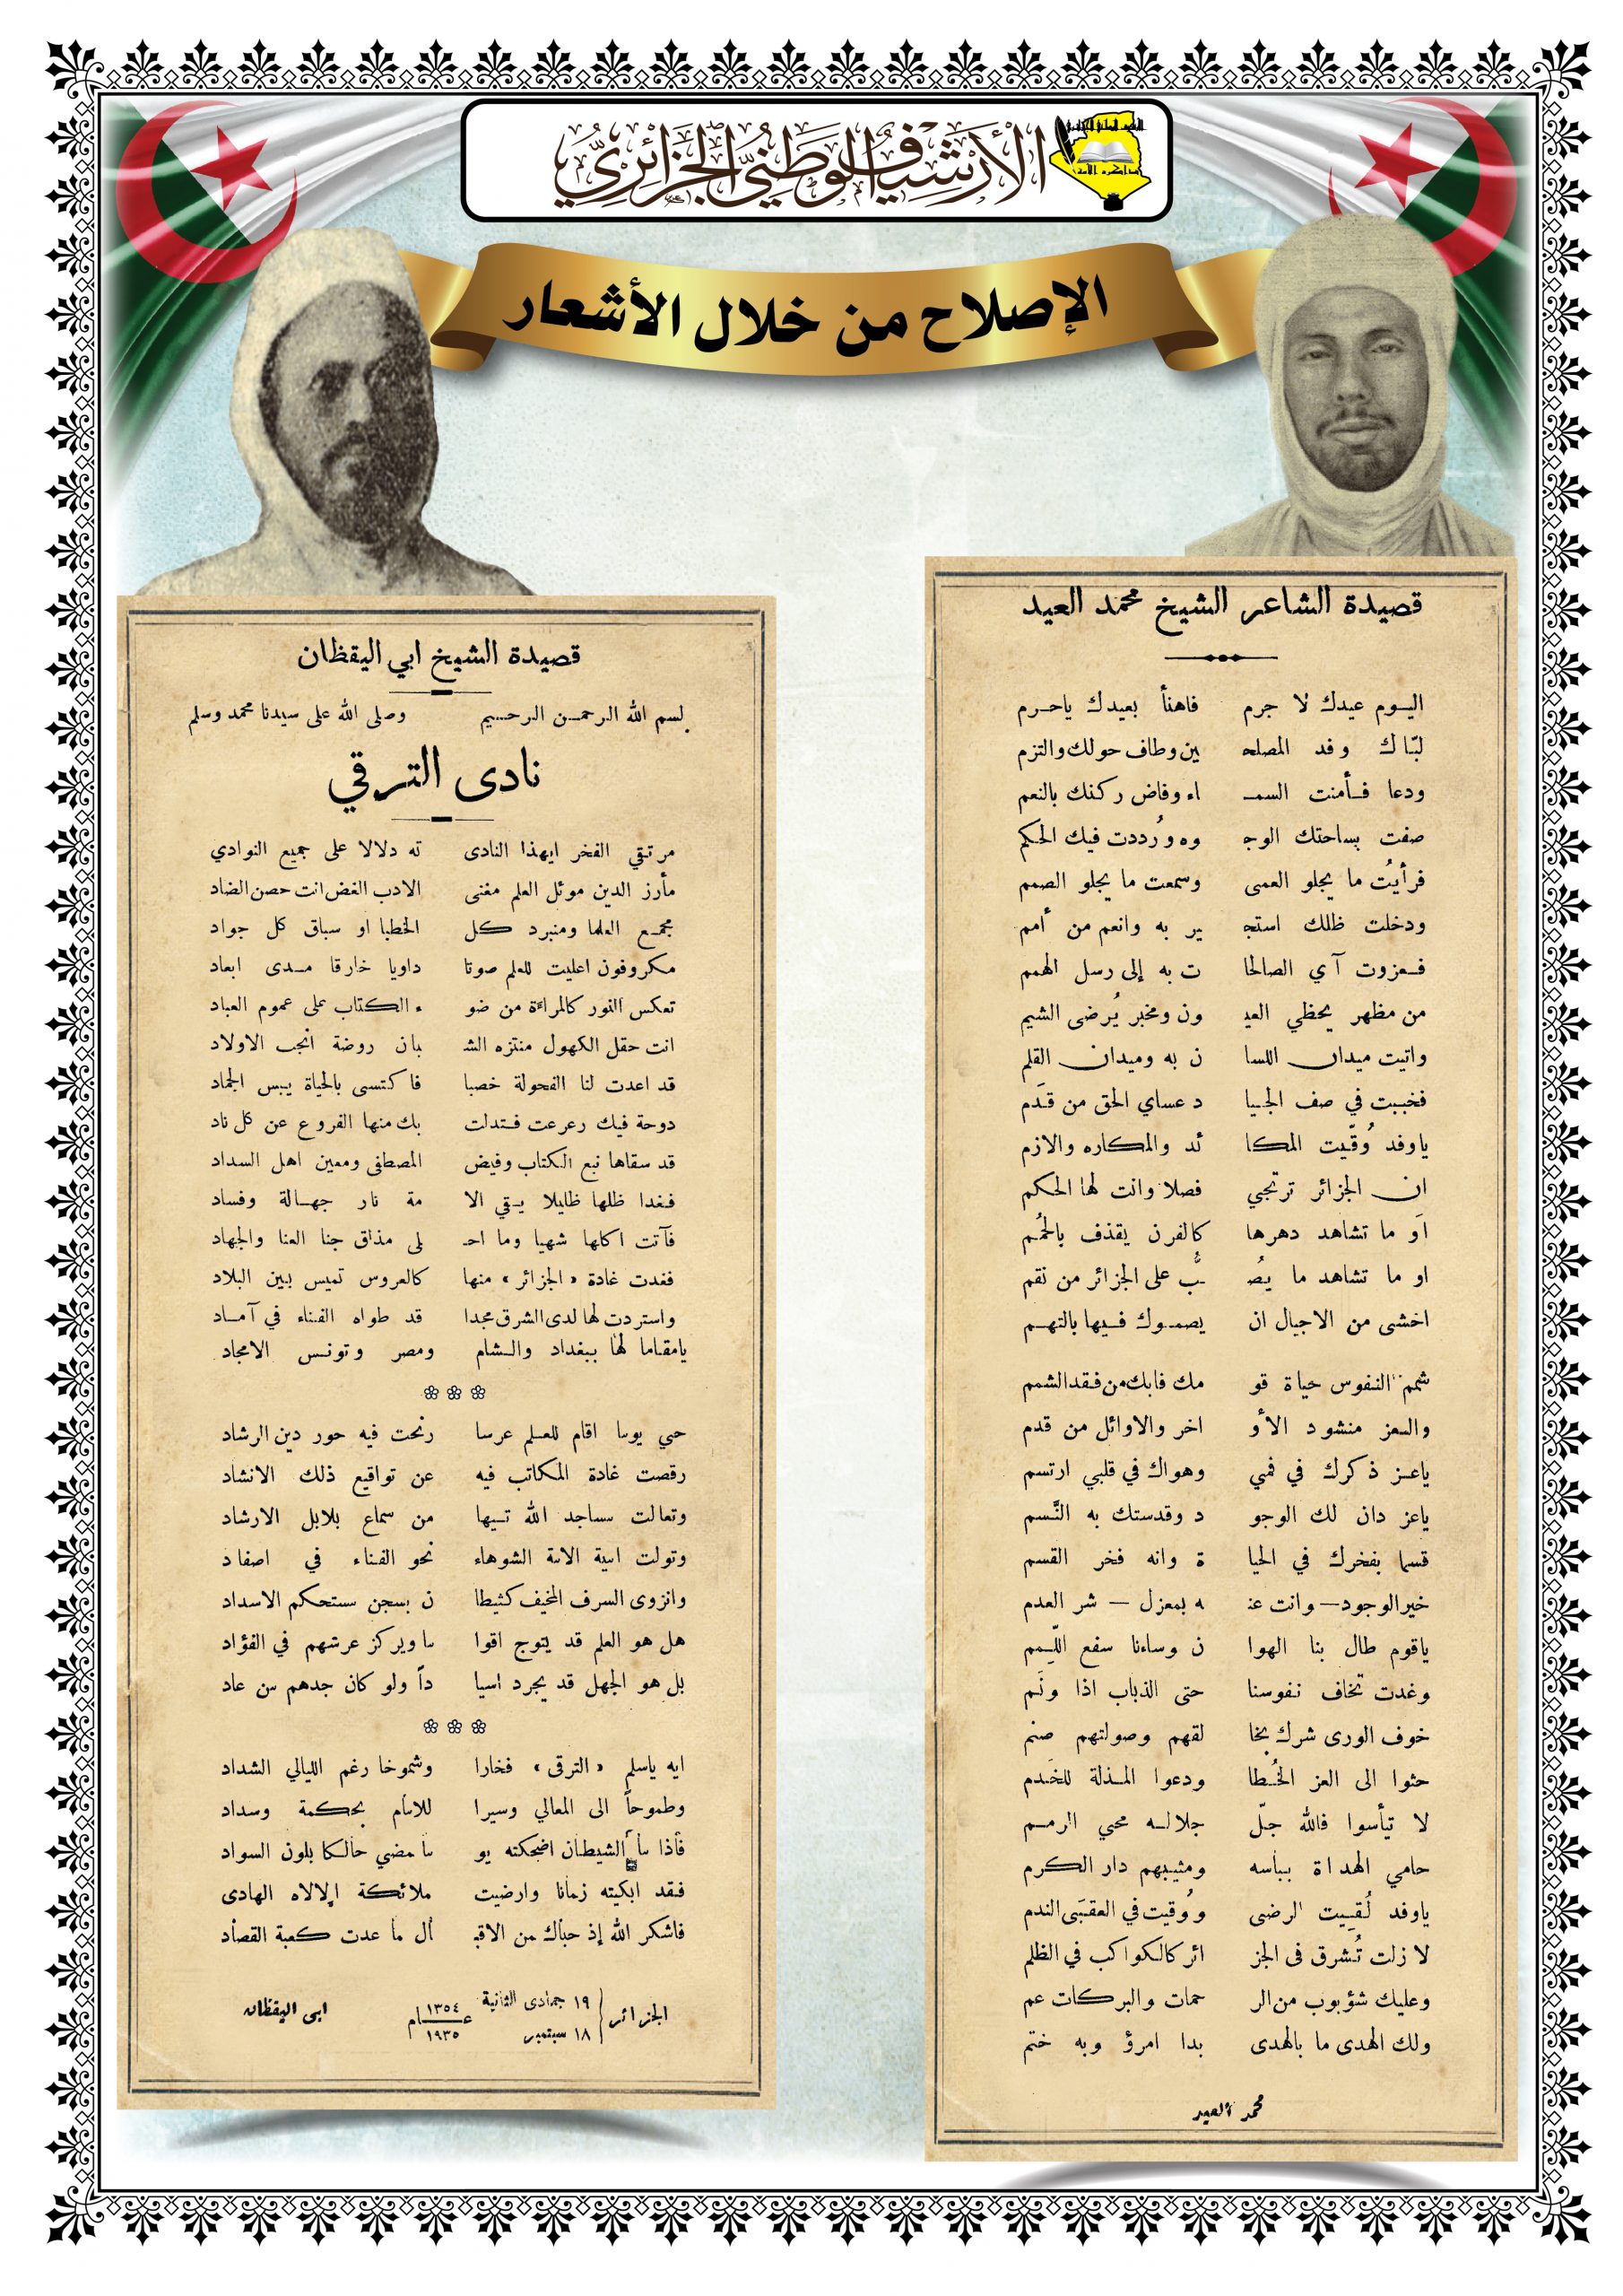 الأرشيف الوطني الجزائري
الإصلاح من خلال الأشعار
قصيدة الشاعر الشيخ محمد العيد
اليوم عيدك لا جرم فاهنأ بعيدك ياحرم
لبّاك وفد المصلحـ ين وطاف حولك والتزم
ودعا فأمنت السمـ اء وفاض ركنك بالنعم
صفت بساحتك الوجـ وه ورُددت فيك الحكم
فرأيتُ ما يجلو العمى وسمعت ما يجلو الصمم
ودخلت ظلك استجـ ير به وانعم من أمم
فعزوت آي الصالحا ت به إلى رسل الهمم
من مظهر يحظي العيـ ون ومخبر يُرضى الشيم
واتيت ميدان اللسا ن به وميدان القلم
فخببت في صف الجيا د عساي الحق من قدَم
ياوفد وُقّيت المكا ئد والمكاره والازم
ان الجزائر ترتجي فصلا وانت لها الحكم
أو ما تشاهد دهرها كالفرن يقذف بالحُمم
او ما تشاهد ما يصُـ ـبُّ على الجزائر من نقم
اخشى من الاجيال ان يصموك فيها بالتهم
شمم النفوس حياة قو مك فابك من فقد الشمم
والعز منشود الأو اخر والاوائل من قدم
ياعز ذكرك في فمي وهواك في قلبي ارتسم
ياعز دان لك الوجو د وقدستك به النَّسم
قسما بفخرك في الحيا ة وانه فخر القسم
خير الوجود — وانت عنـ ه بمعزل — شر العدم
ياقوم طال بنا الهوا ن وساءنا سفع اللّمم
وغدت تخاف نفوسنا حتى الذباب اذا ونَم
خوف الورى شرك بخا لقهم وصولتهم صنم
حثوا الى العز الخُطا ودعوا المذلة للخدم
لا تيأسوا فالله جلّ جلاله محي الرمم
حامي الهداة ببأسه ومثيبهم دار الكرم
ياوفد لُقيت الرضى ووُقيت في العقبَى الندم
لا زلت تُشرق فى الجز ائر كالكواكب في الظلم
وعليك شؤبوب من الر حمات والبركات عم
ولك الهدى ما بالهدى بدا امرؤ وبه ختم
محمد العيد
قصيدة الشيخ ابي اليقظان
بسم الله الرحمن الرحيم وصلى الله على سيدنا محمد وسلم
نادى الترقي
مرتقي الفخر ايهذا النادى ته دلالا على جميع النوادي
مأرز الدين موئل العلم مغنى الادب الغض انت حصن الضاد
مجمع العلما ومنبرد كل الخطبا او سباق كل جواد
مكروفون اعليت للعلم صوتا داويا خارقا مدى ابعاد
تعكس النور كالمراءة من ضو ء الكتاب على عموم العباد
انت حقل الكهول منتزه الشـ بان روضة انجب الاولاد
قد اعدت لنا الفحولة خصبا فاكتسى بالحياة يبس الجماد
دوحة فيك رعرعت فتدلت بك منها الفروع عن كل ناد
قد سقاها نبع الكتاب وفيض المصطفى ومعين اهل السداد
فغدا ظلها ظليلا يقي الا مة نار جهالة وفساد
فآتت اكلها شهيا وما احـ لى مذاق جنا العنا والجهاد
فغدت غادة «الجزائر» منها كالعروس تميس بين البلاد
واستردت لها لدى الشرق مجدا قد طواه الفناء في آماد
يامقاما لها ببغداد والشام ومصر وتونس الامجاد
حي يوما اقام للعلم عرسا رنحت فيه حور دين الرشاد
رقصت غادة المكاتب فيه عن تواقيع ذلك الانشاد
وتعالت مساجد الله تيها من سماع بلابل الارشاد
وتولت امية الامة الشوهاء نحو الفناء في اصفاد
وانزوى السرف المخيف كشيطا ن بسجن مستحكم الاسداد
هل هو العلم قد يتوج اقوا ما ويركز عرشهم في الفؤاد
بل هو الجهل قد يجرد اسيا داً ولو كان جدهم من عاد
ايه ياسلم «الترقى» فخارا وشموخا رغم الليالي الشداد
وطموحاً الى المعالي وسيرا للامام بحكمة وسداد
فأذا ما الشيطان اضحكته يو ما مضى حالكا بلون السواد
فقد ابكيته زمانا وارضيت ملائكة الالاه الهادى
فاشكر الله إذ حباك من الاقبـ ال ما عدت كعبة القصاد
الجزائر ١٩ جمادى الثانية ١٣٥٤
١٨ سبتمبر ١٩٣٥ عام
ابى اليقظان